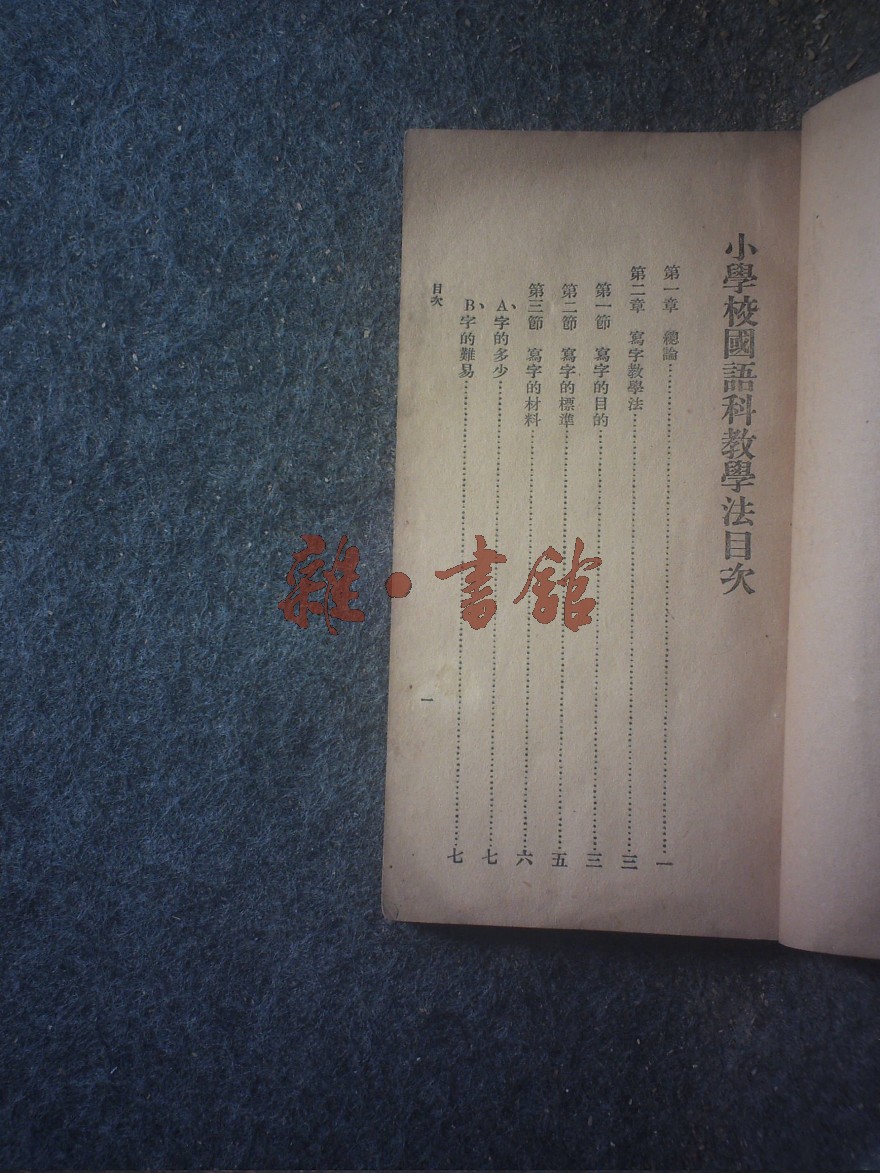 小學校國語科教學法目次
第一章　總論……………一
第二章　寫字教學法……………三
第一節　寫字的目的……………三
第二節　寫字的標準……………五
第三節　寫字的材料……………六
A、字的多少……………七
B、字的難易……………七
目次
一
雜·書館